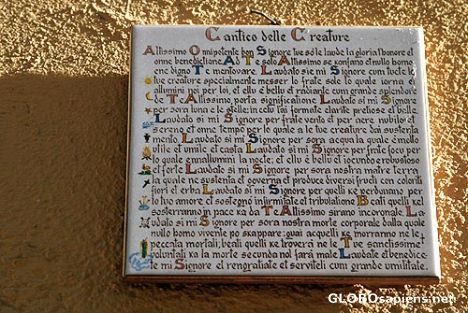 Cantico delle Creature
Altissimo Omnipotente bon Signore tue só le laude la gloria l'honore et
onne benedictione. A Te solo Altissimo se konfano et nullo homo
ene digno Te mentovare Laudato sie mi Signore cum tucte le
tue creature specialmente messer lo frate sole lo quale iorna et
allumini noi per loi, et ellu è bellu et radiante cum grande splendore
de Te Altissimo, porta significatione Laudato si mi Signore
per sora luna e le stelle; in celu l'ai formate clarite pretiose et belle
Laudato si mi Signore per frate vento et per aere nubilo et
sereno et onne tempo per lo quale a le tue creature dai sustenta
mento Laudato si mi Signore per sora acqua la quale é molto
utile et umile et casta Laudato si mi Signore per frate focu per
lo quale ennallumini la nocte; et ellu é bellu et iocundo e robustoso
et forte Laudato si mi Signore per sora nostra matre terra
la quale ne sustenta et governa et produce diversi fructi con coloriti
fiori et erba Laudato si mi Signore per quelli ke perdonano per
lo tuo amore et sostegno infirmitate et tribulatione Beati quelli ke
sosterranno in pace ka da Te Altissimo sirano incoronati. La
udato si mi Signore per sora nostra morte corporale dalla quale
nullo homo vivente po skappare: guai acquelli ke morranno ne le
peccata mortali; beati quelli ke troverà ne le Tue sanctissime
voluntati ka la morte secunda nol farrà male Laudate et benedice
te mi Signore et rengratiate et serviteli cum grande umilitate
GLOBOsapiens.net